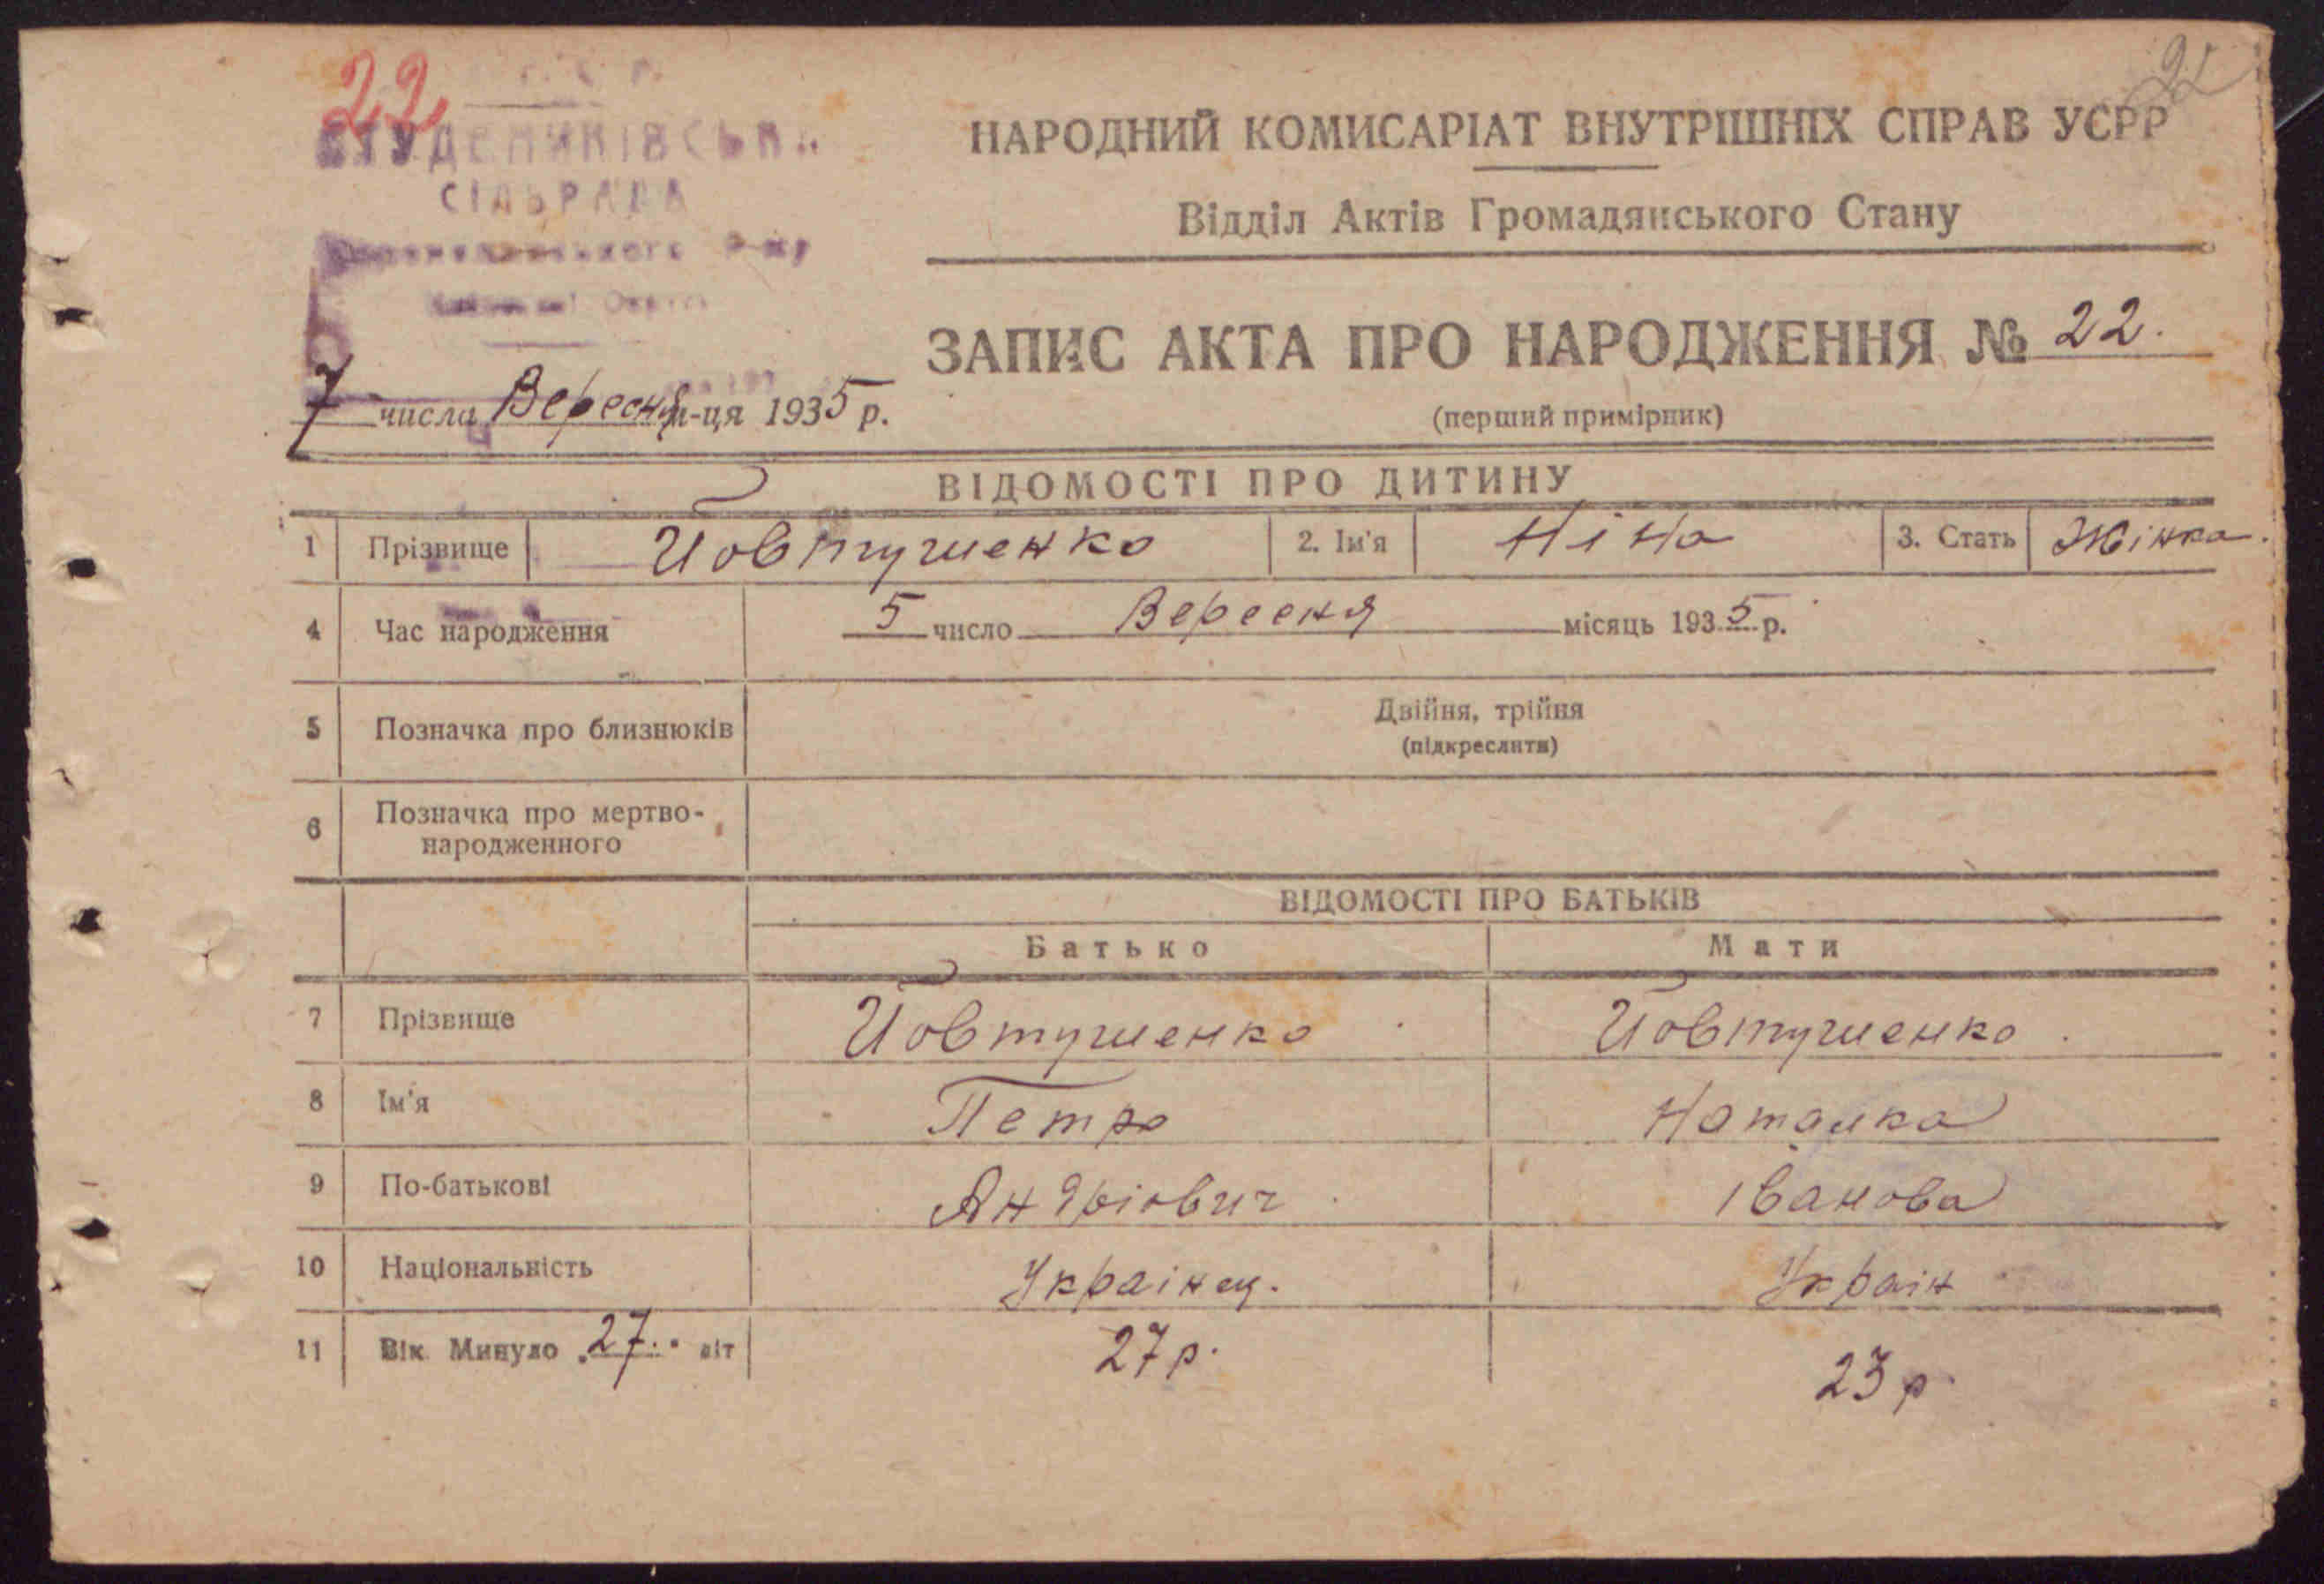 22
СТУДЕНИКІВСЬКА
СІЛЬРАДА
р-ну
7 числа Вересня м-ця 1935 р.
НАРОДНИЙ КОМИСАРІАТ ВНУТРІШНІХ СПРАВ УСРР
Відділ Актів Громадянського Стану
ЗАПИС АКТА ПРО НАРОДЖЕННЯ № 22.
(перший примірник)
ВІДОМОСТІ ПРО ДИТИНУ
1 Прізвище Йовтушенко 2. Ім'я Ніна 3. Стать Жінка.
4 Час народження 5 число Вересня місяць 1935 р.
5 Позначка про близнюків Двійня, трійня
(підкреслити)
6 Позначка про мертво-
народженного
ВІДОМОСТІ ПРО БАТЬКІВ
Батько Мати
7 Прізвище Йовтушенко Йовтушенко
8 Ім'я Петро Наталка
9 По-батькові Андріович Іванова
10 Національність Украінец. Украін
11 Вік Минуло 27 літ 27 р. 23 р